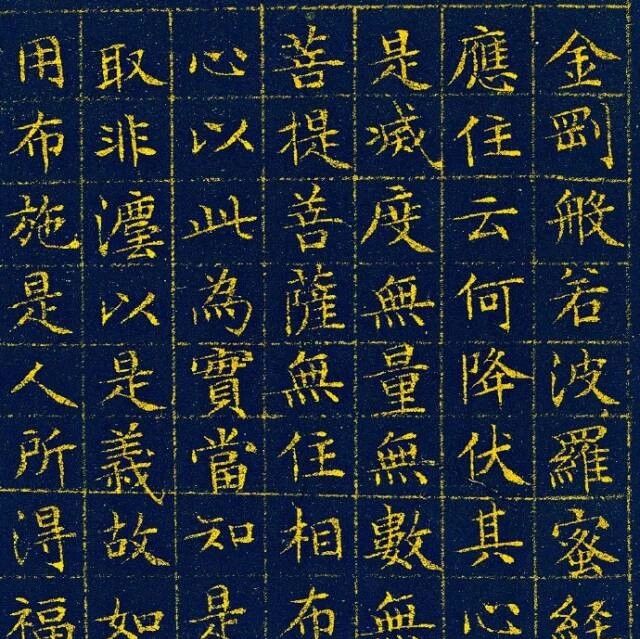 金剛般若波羅蜜経
應住云何降伏其心
是滅度無量無數無
菩提善薩無住相布
心以此為實當知是
取非法以是義故如
用布施是人所得福